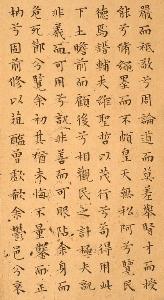 嚴而祗敬兮周論道而莫差舉賢才而授
能兮脩繩墨而不頗皇天無私阿兮覽民
德焉錯輔夫維聖哲以茂行兮苟得用此
下土瞻前而顧後兮相觀民之計極夫孰
非義而可用兮孰非善而可服阽余身而
危死節兮覽余初其猶未悔不量鑿而正
枘兮固前修以菹醢曾歔欷余鬱邑兮哀